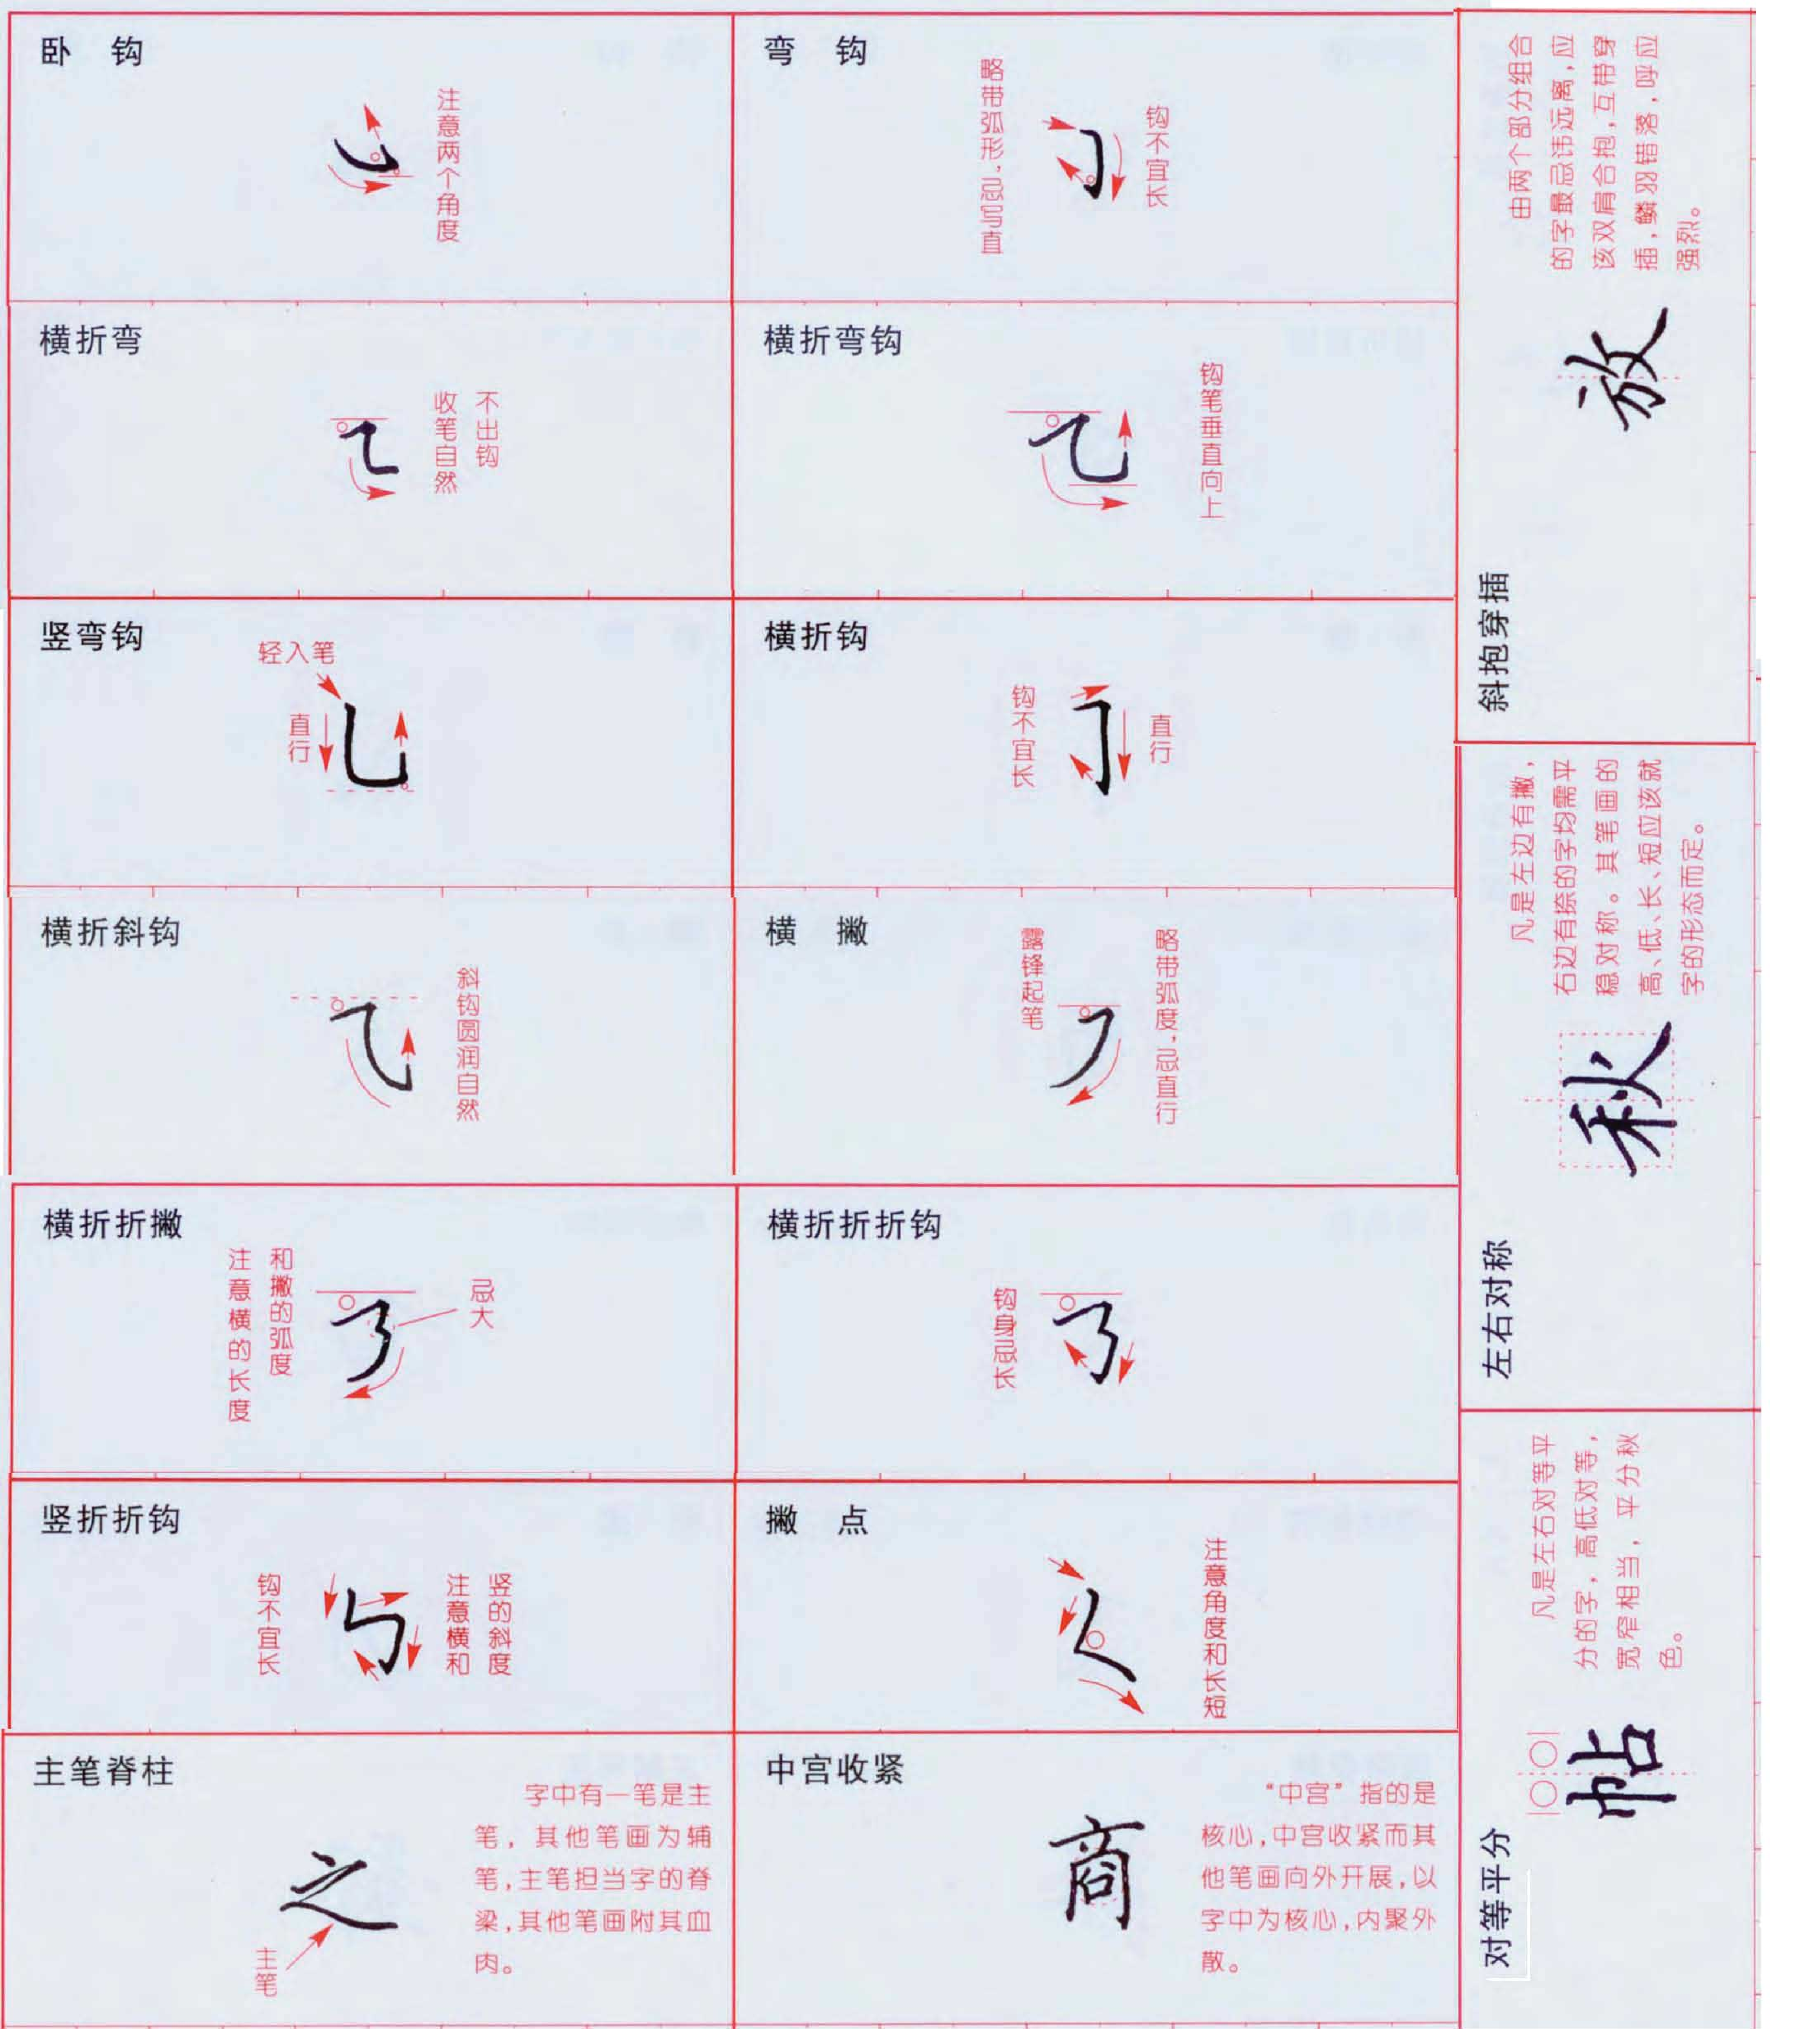 卧 钩
注意两个角度
弯 钩
略带弧形，忌写直
钩不宜长
横折弯
收笔自然
不出钩
横折弯钩
钩笔垂直向上
竖弯钩
轻入笔
直行
横折钩
钩不宜长
直行
横折斜钩
斜钩圆润自然
横 撇
露锋起笔
略带弧度，忌直行
横折折撇
注意横的长度
和撇的弧度
忌大
横折折折钩
钩身忌长
竖折折钩
钩不宜长
注意横和
竖的斜度
撇 点
注意角度和长短
主笔脊柱
字中有一笔是主
笔，其他笔画为辅
笔，主笔担当字的脊
梁，其他笔画附其血
肉。
之
主笔
中宫收紧
“中宫”指的是
核心，中宫收紧而其
他笔画向外开展，以
字中为核心，内聚外
散。
商
斜抱穿插
由两个部分组合
的字最忌讳远离，应
该双肩合抱，互带穿
插，鳞羽错落，呼应
强烈。
放
左右对称
凡是左边有撇，
右边有捺的字均需平
稳对称。其笔画的
高、低、长、短应该就
字的形态而定。
秋
对等平分
凡是左右对等平
分的字，高低对等，
宽窄相当，平分秋
色。
帖